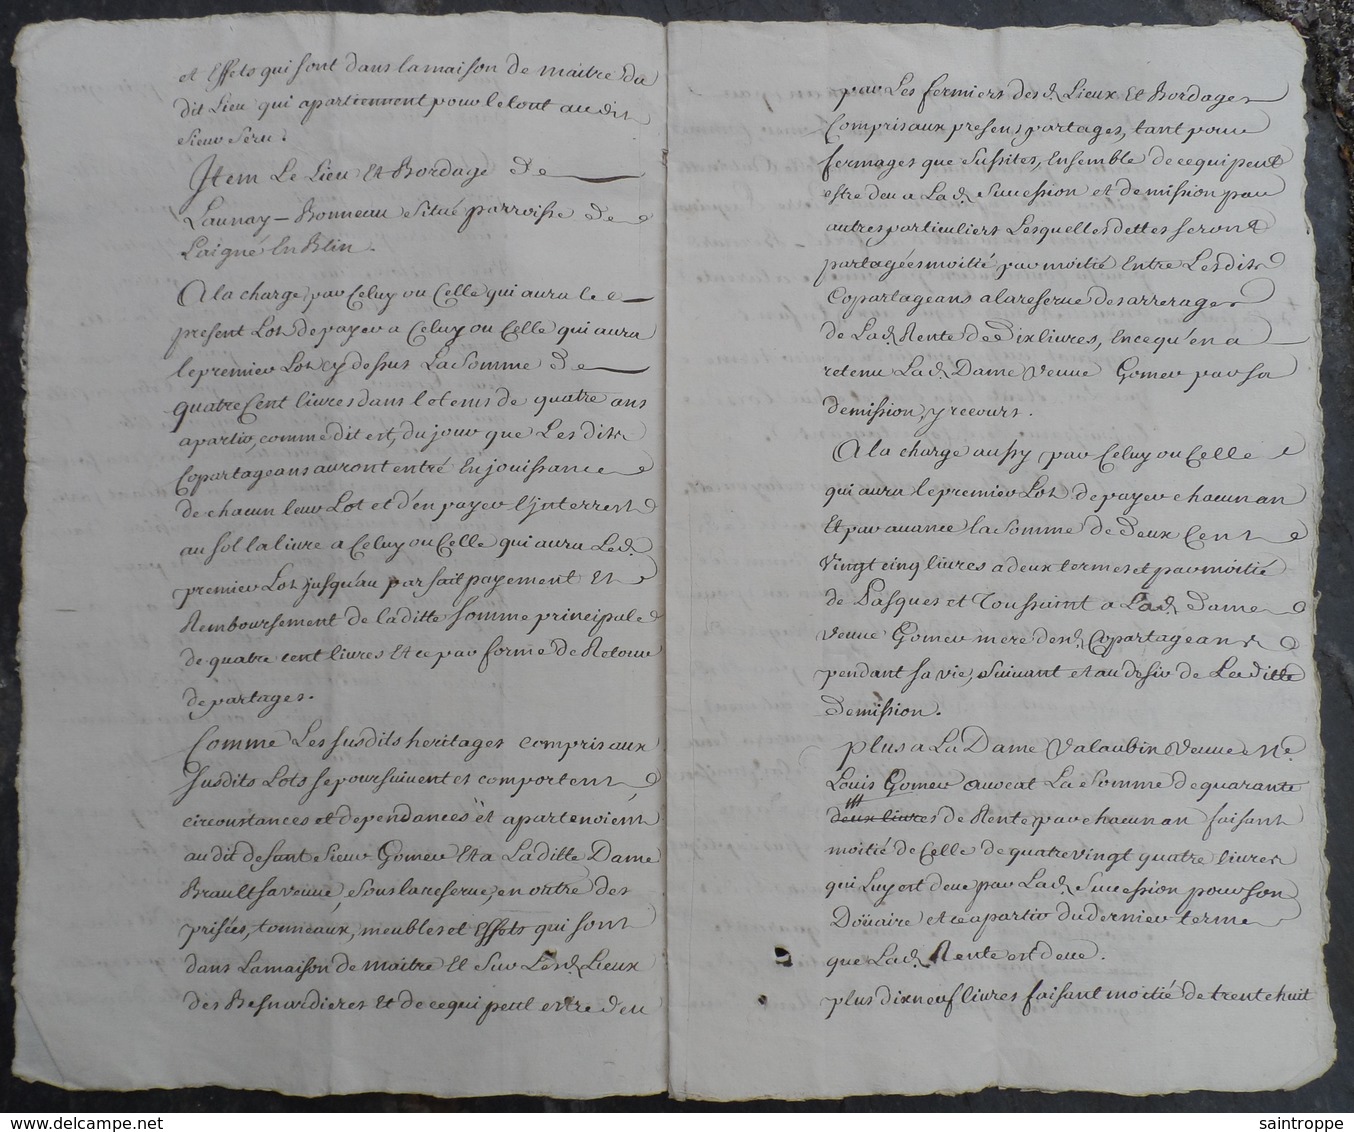 et Effets qui sont dans la maison de maitre du
dit Lieu qui apartiennent pour le tout au dit
sieur Seru.
Item Le Lieu Et Bordage De
Launay-Bonneau situé parroisse De
Laigné En Blin.
A la charge par Celuy ou Celle qui aura le
present Lot de payer a Celuy ou Celle qui aura
le premier Lot cy dessus La somme De
quatre Cent livres dans le tems de quatre ans
a partir, comme dit est, du jour que Les dits
Copartageans auront entré En jouissance
de chacun leur Lot et d'en payer l'jnterrest
au sol la livre a Celuy ou Celle qui aura Led.
premier Lot jusqu'au parfait payement Et
Remboursement de la ditte somme principale
de quatre cent livres Et ce par forme de Retour
de partages.
Comme Les susdits heritages compris aux
susdits Lots se poursuivent et comportent
circonstances et dependances et apartenoient
au dit defunt sieur Gomer Et a La ditte Dame
Brault sa veuve, sous la reserve, en outre des
prisées, tonneaux, meubles et Effets qui sont
dans La maison de maitre Et sur Lesd. Lieux
des Besnardieres Et de ce qui peut estre deu
par Les fermiers desd. Lieux Et Bordages
Compris aux presens partages, tant pour
fermages que sussites, Ensemble de ce qui peut
estre deu a Lad. succession et demission par
autres particuliers Lesquelles dettes seront
partagées moitié par moitié Entre Lesdits
Copartageans a la reserve des arrerages
de Lad. Rente de Dix livres, En ce qu'en a
retenu Lad. Dame veuve Gomer par sa
demission, y recours.
A la charge aussy par Celuy ou Celle
qui aura le premier Lot de payer chacun an
Et par avance la somme de Deux Cent
Vingt cinq livres a deux termes et par moitié
de Pasques et Toussaint a Lad. Dame
Veuve Gomer mere desd. Copartageans
pendant sa vie, suivant et au desir de La ditte
Demission.
Plus a La Dame Valaubin veuve Me.
Louis Gomer avocat La somme de quarante
deux livres de Rente par chacun an faisant
moitié de Celle de quatre vingt quatre livres
qui Luy est deue par Lad. succession pour son
Doüaire et ce a partir du dernier terme
que Lad. Rente est deue.
plus dix neuf livres faisant moitié de trente huit
saintroppe